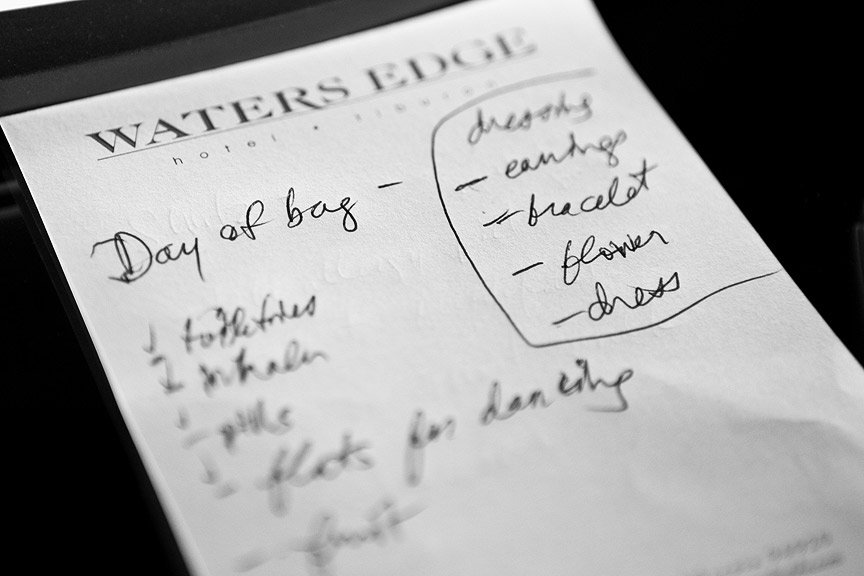 WATERS EDGE
hotel • tiburon
Day of bag -
dressing
- earrings
- bracelet
- flower
- dress
toiletries
- inhaler
- pills
- flats for dancing
- fruit